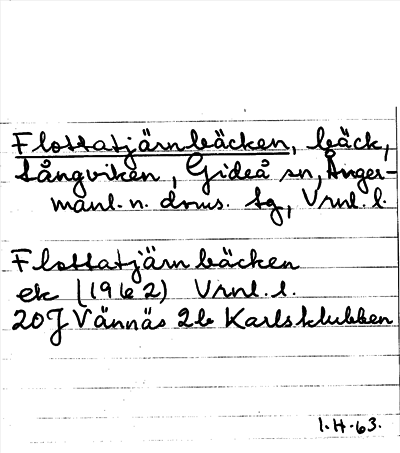 Flottatjärnbäcken, bäck,
Långviken, Gideå sn, Ånger-
manl. n. doms. tg, Vrnl. l.
Flottatjärnbäcken
ek (1962) Vrnl. l.
20J Vännäs 2b Karlsklubben
I.H-63.